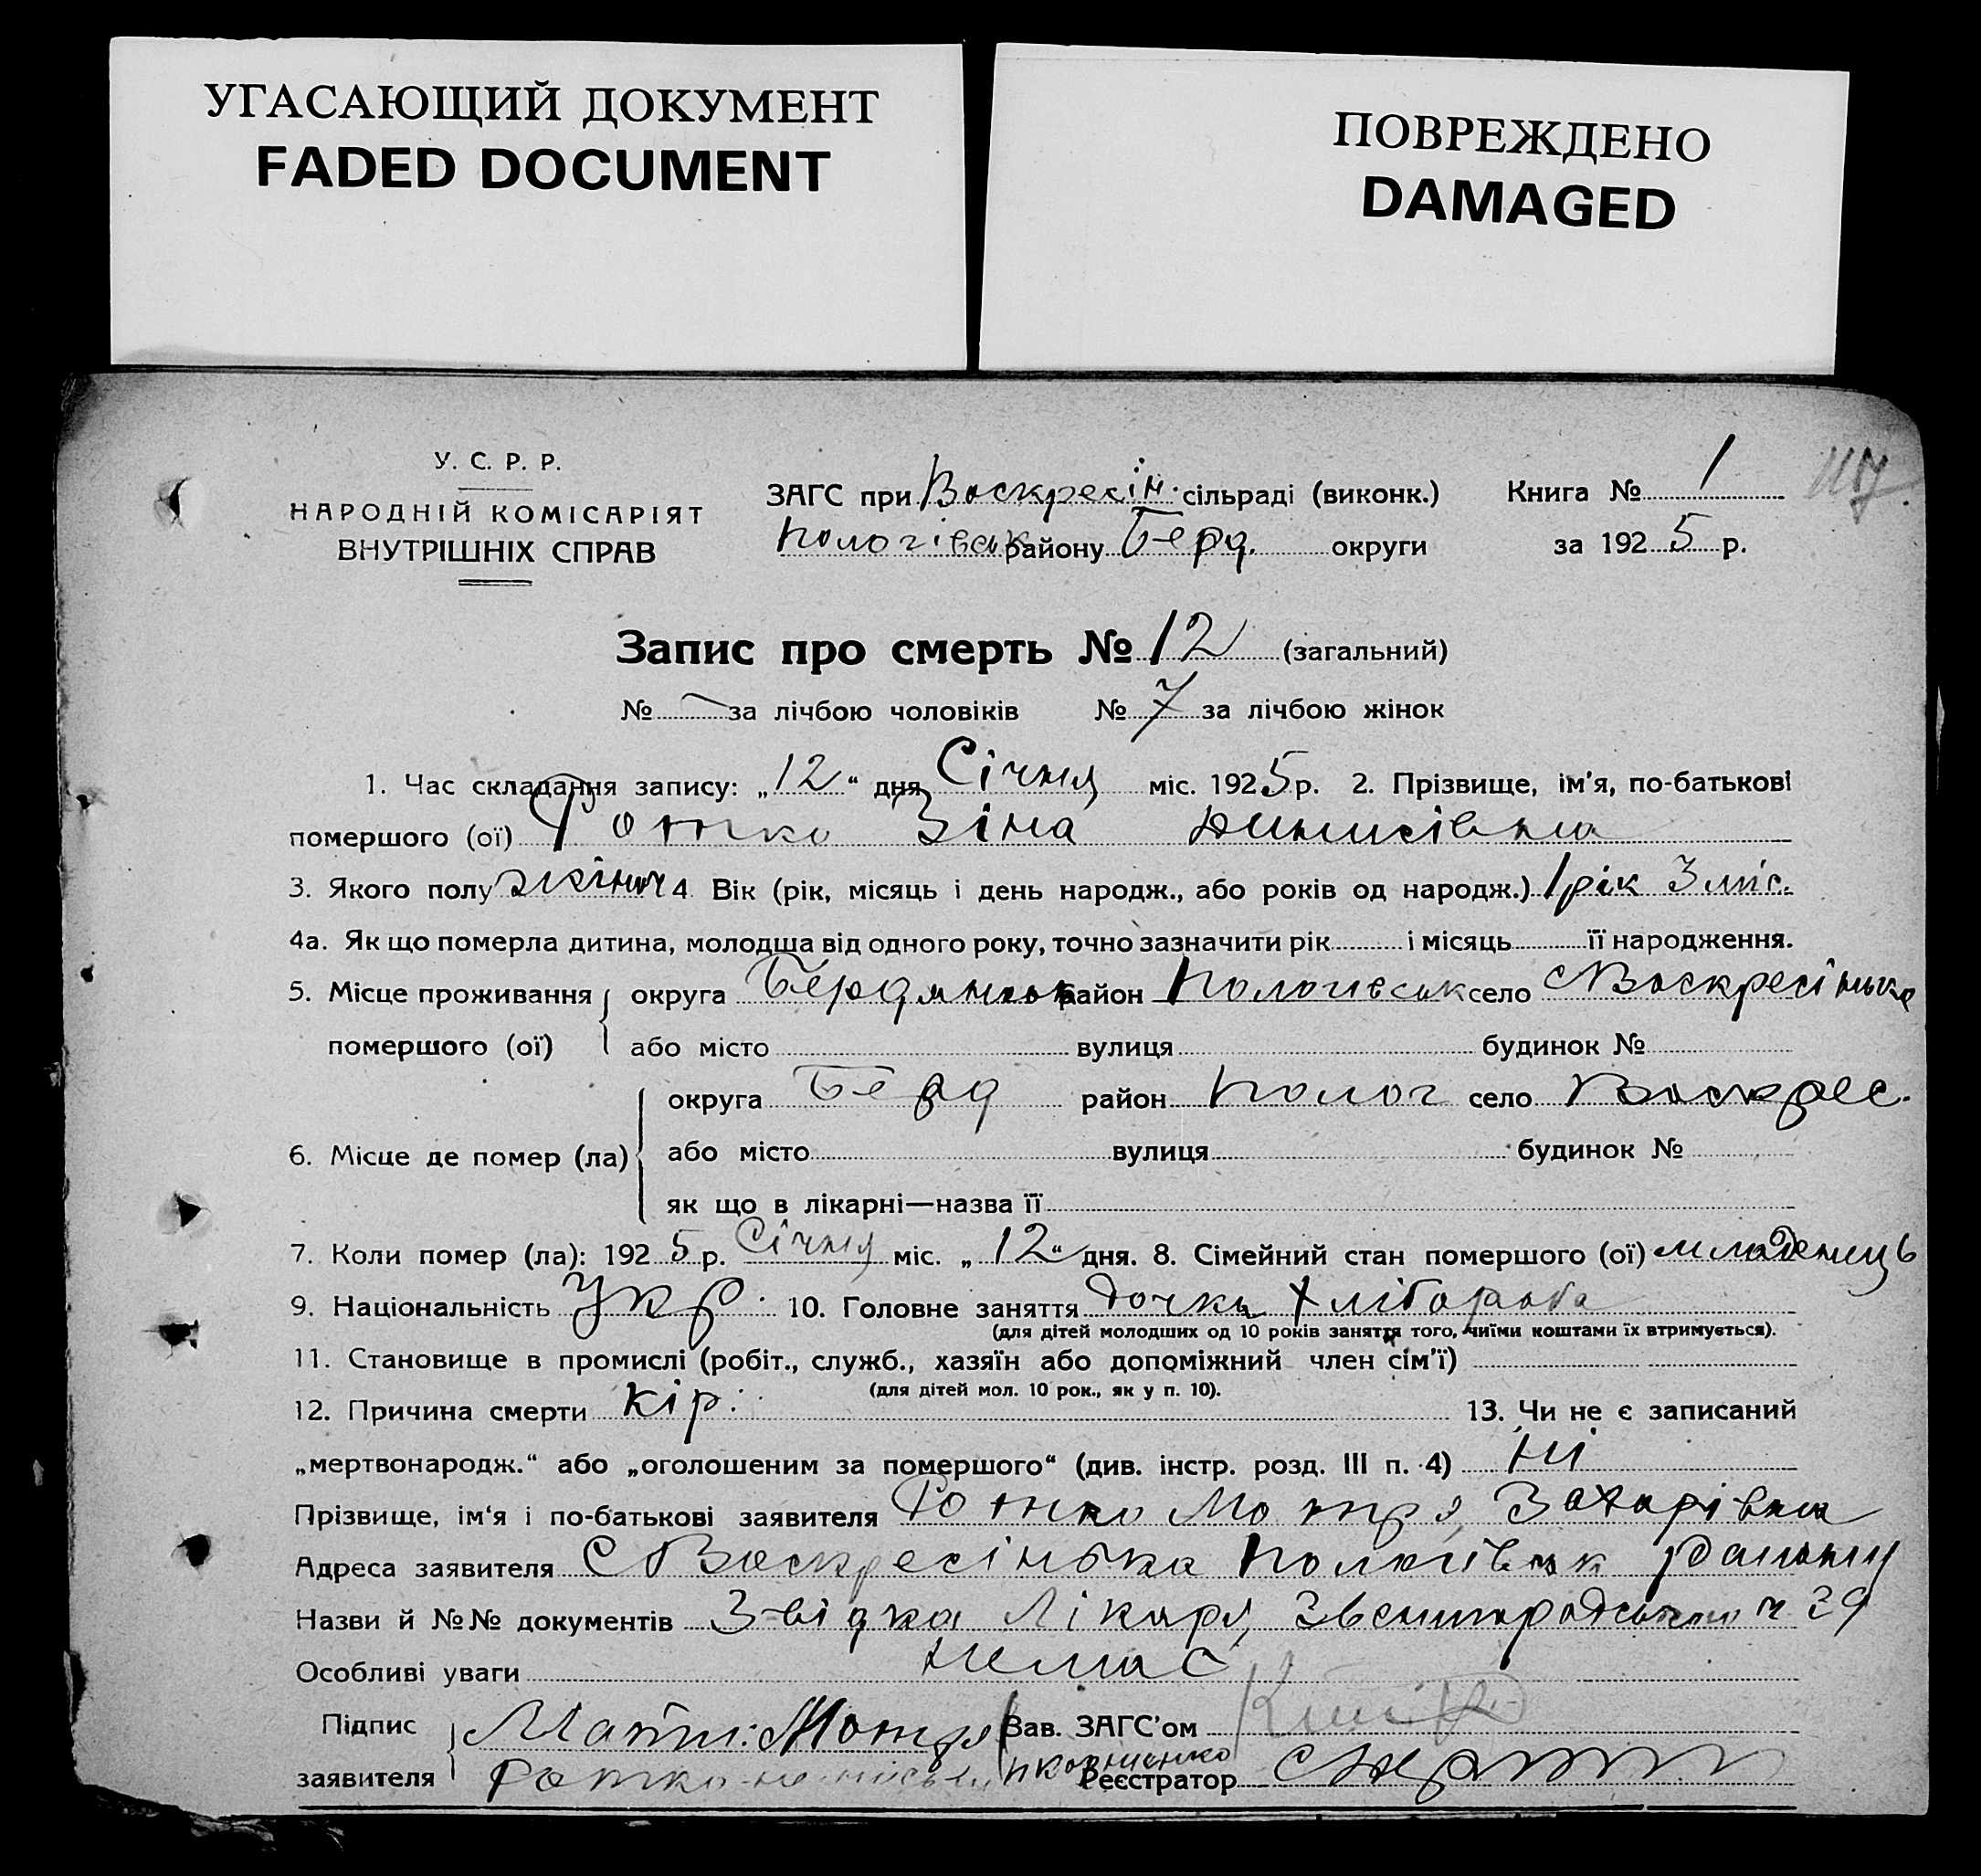 УГАСАЮЩИЙ ДОКУМЕНТ
FADED DOCUMENT
ПОВРЕЖДЕНО
DAMAGED
У. С. Р. Р.
НАРОДНІЙ КОМІСАРІЯТ
ВНУТРІШНІХ СПРАВ
ЗАГС при Воскресін. сільраді (виконк.)
Пологівськ району Берд. округи
Книга № 1
за 1925 р.
117
Запис про смерть № 12 (загальний)
№ — за лічбою чоловіків № 7 за лічбою жінок
1. Час складання запису: „12“ дня Січня міс. 1925 р. 2. Прізвище, ім'я, по-батькові
помершого (ої) Фотко Зіна Динисівна
3. Якого полу жіноч 4 Вік (рік, місяць і день народж., або років од народж.) 1 рік 3 міс.
4а. Як що померла дитина, молодша від одного року, точно зазначити рік і місяць її народження.
5. Місце проживання округа Бердянськ район Пологівськ село Воскресінька
помершого (ої) або місто вулиця будинок №
округа Берд район Полог село Воскрес.
6. Місце де помер (ла) або місто вулиця будинок №
як що в лікарні—назва її
7. Коли помер (ла): 1925 р. Січня міс. „12“ дня. 8. Сімейний стан помершого (ої) младенець
9. Національність Укр. 10. Головне заняття дочка хлібороба
(для дітей молодших од 10 років заняття того, чиїми коштами їх втримується).
11. Становище в промислі (робіт., служб., хазяїн або допоміжний член сім'ї)
(для дітей мол. 10 рок., як у п. 10).
12. Причина смерти кір. 13. Чи не є записаний
„мертвонародж.“ або „оголошеним за помершого“ (див. інстр. розд. III п. 4) ні
Прізвище, ім'я і по-батькові заявителя Фотко Мотря Захарівна
Адреса заявителя с Воскресінька Пологівськ району
Назви й №№ документів Звідка Лікаря Звенигродського ч 39
Особливі уваги немає
Підпис Мати: Мотря Зав. ЗАГС'ом
заявителя Фотко Реєстратор